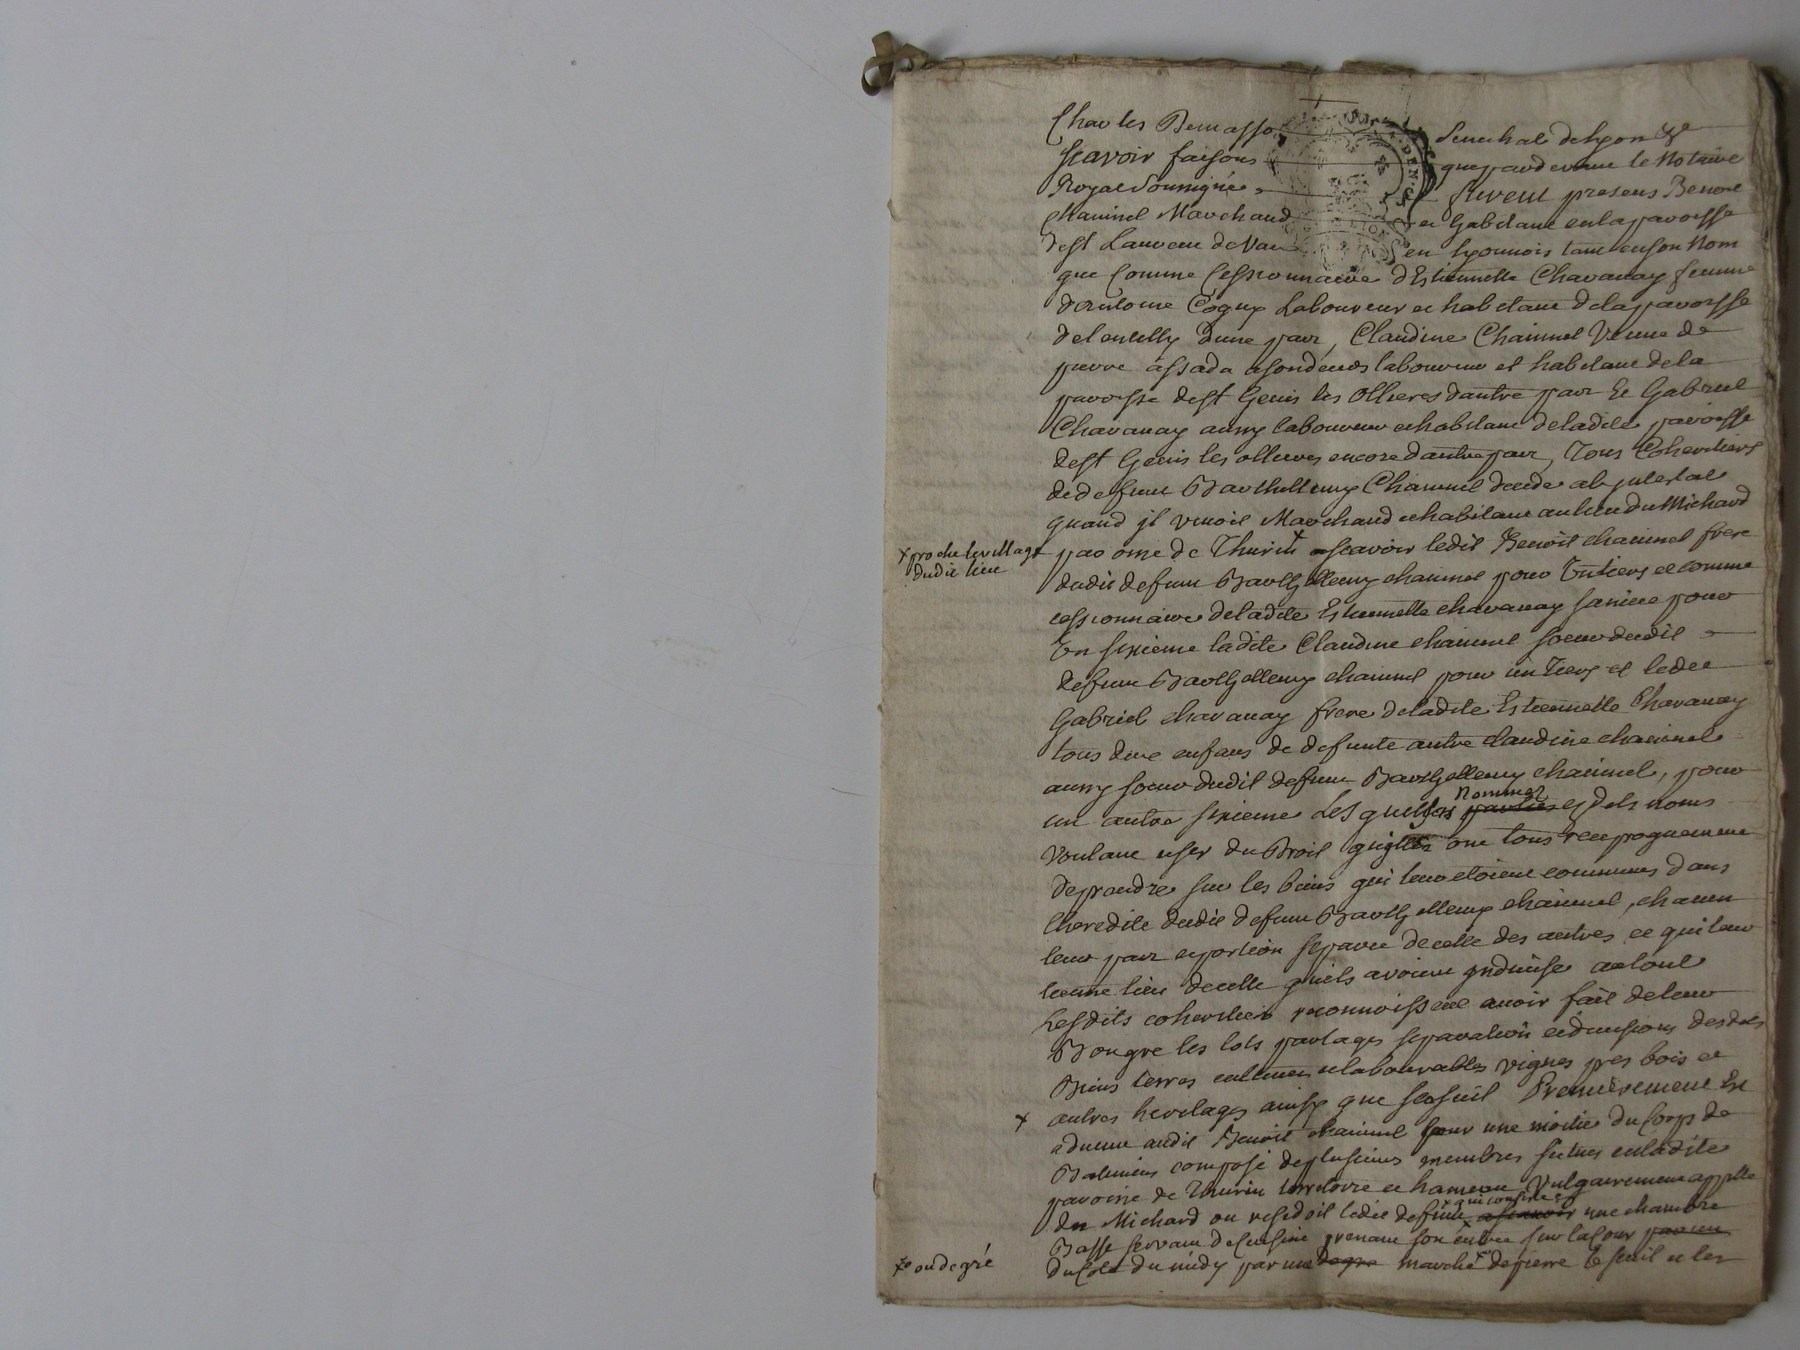 Charles Demasso Senechal de Lyon &c
scavoir faisons que pardevant le Notaire
Royal Soussigné furent presens Benoit
Chaninel Marchand et habitant en la paroisse
de St Laurent de Vau en Lyonnois tant en son Nom
que comme Cessionnaire d'Estiennette Chavanay femme
d'antoine Cogny Laboureur et habitant de la paroisse
de lentilly d'une part, Claudine Chaninel Veuve de
pierre assada laboureur et habitant de la
paroisse de St Genis les Ollieres d'autre part Et Gabriel
Chavanay aussy laboureur et habitant de ladite paroisse
de St Genis les ollieres encore d'autre part, Tous Coheritiers
de defunt Barthellemy Chaninel decedé ab jntestat
quand jl vivoit Marchand et habitant au lieu du Michard
x proche le village
dudit lieu
paroisse de Thurin x scavoir ledit Benoit chaninel frere
dudit defunt Barthellemy chaninel pour Un tiers et comme
cessionnaire de ladite Estiennette chavanay sa niece pour
Un sixieme ladite Claudine chaninel soeur dudit
defunt Barthellemy chaninel pour un Tiers et ledit
Gabriel chavanay frere de ladite Estiennette Chavanay
tous deux enfans de defunte autre claudine chaninel
aussy soeur dudit defunt Barthellemy chaninel, pour
un autre sixieme Lesquels Nommez esdits noms
Voulant user du Droit qu'ils ont tous reciproquement
de prendre sur les biens qui leur etoient communs dans
l'heredité dudit defunt Barthellemy chaninel, chacun
leur part et portion separée de celle des autres ce qui leur
tienne lieu de celle qu'ils avoient jndivise au tout
Lesdits coheritiers reconnoissent avoir fait de leur
Bongré les lots partages separation et divisions desdits
Biens terres cultivées et labourables vignes prez bois et
x autres heritages ainsy que s'ensuit Premierement Est
advenu audit Benoit chaninel pour une moitié du Corps de
Batimens composé de plusieurs membres situés en ladite
paroisse de Thurin territoire et hameau Vulgairement appellé
du Michard ou residoit ledit defunt x qui consiste en une chambre
Basse servant de Cuisine prenant son entrée sur la Cour
du Coté du midy par une degre marche x de pierre le seuil et les
x ou degré